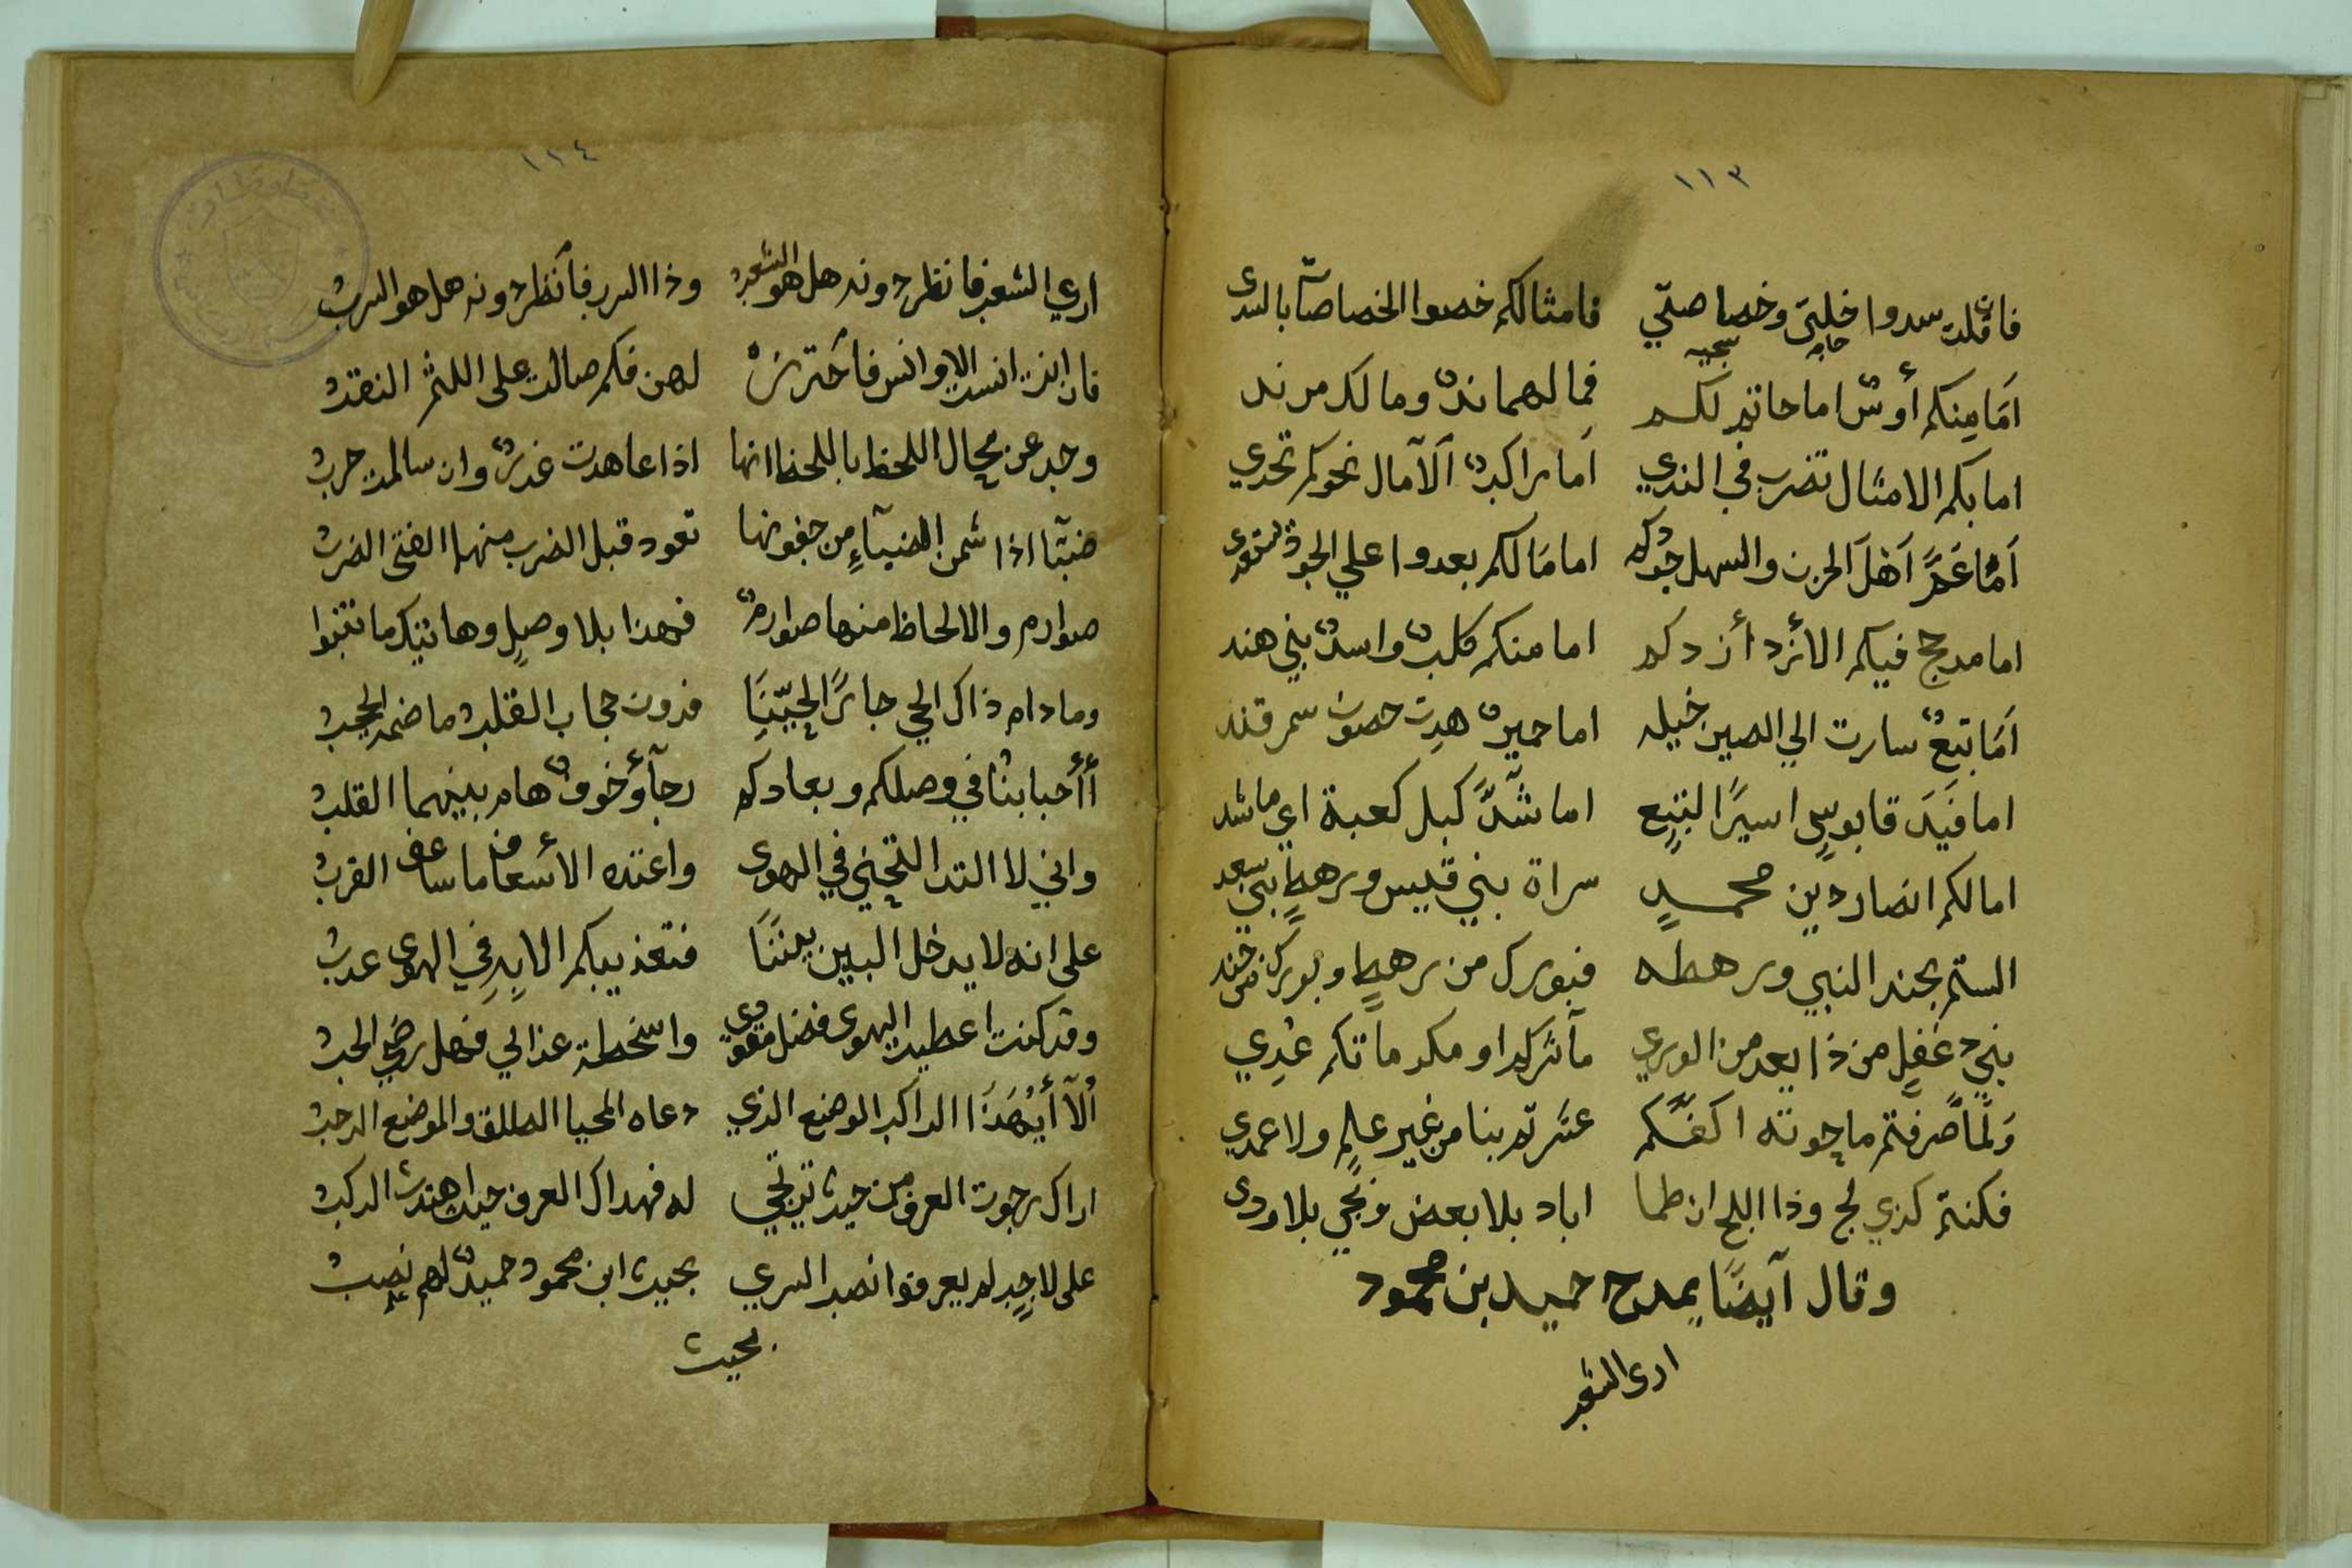 ١١٣
فاقلت سدوا خلتي وخصاصتي فامثالكم خصوا الخصاصات بالسدى
امَا مِنكم أوسٌ اما حاتم لكم فما لهما ندٌ وما لكم من ند
اما بكم الامثال تضرب في الندي اَما راكبٌ اَلآمال نحوكم تحدي
اَمَا عَمَّ اَهْلَ الحزن والسهل جودكم اما مَالكم بعدوا علي الجود
اما مدحج فيكم الأزد أزدكم اما منكم كلبٌ واسدٌ بني هند
اَمَا تبعٌ سارت الي الصين خيله اما حميرٌ هدت حصون سمرقند
اما قَيَدَ قابوسٍ اسيرًا لتبع اما شَدَّ كبل كعبة اي ما شد
اما لكم انصار دين محمدٍ سراة بني قيس ورهط بني سعد
الستم بجند النبي ورهطه فبورك من رهطٍ وبورك من جند
بني دغفلٍ من ذا يعد من الوري مآثركم او مكرماتكم عُدِي
وَلمّا صَرفتم ما حوته اكفكم عثرتم بنا من غير علمٍ ولا عمدي
فكنتم كذي لج وذا اللج ان طما اباد بلا بعض ونجي بلا ودى
وقال آيضًا يمدح حميد بن محمود
ارى الثغر
١١٤
اري الثغر فانظر دونه هل هو الثغر وذا السرب فاَنظر دونه هل هو السربُ
فان انت انست الاوانس فاَحترسْ لهن فكم صالت على اللثم النقدُ
وحد عن مجال اللحظ باللحظ انها اذا عاهدت غدرٌ وان سالمت حربُ
ضبًا اذا شمن الضبآءِ من جفونها تعود قبل الضرب منها الفتى الضربُ
صوارم والالحاظ منها صوارمٌ فهذا بلا وصلٍ وهاتيك ما تنبوا
وما دام ذاك الحي جارًا لحيّنِنَا فدون حجاب القلب ما ضمه الحجبُ
أأحبابنُا في وصلكم وبعادكم رجآؤ خوفٌ هام بينهما القلبُ
واني لا التد التجني في الهوى واعتده الأسعاف ما ساعف القربُ
على انه لا يدخل البين بيننَا فتعذيبكم الابِه في الهوى عذبُ
وقد كنت اعطيت الهوى فضل مقودي واسخطة عذالي فهل رضي الحبُ
اُلآ أيُهَذَا الراكب الوضع الذي دعاه المحيا الطلق والموضع الرحبُ
اراك رجوت العرف من حيث ترتجي له فهداك العرف حيث اهتدت الركبُ
على لاحبٍ لم يعرفوا نصب السري بحيث ابن محمود حميدٌ لهم نصبُ
بحيث